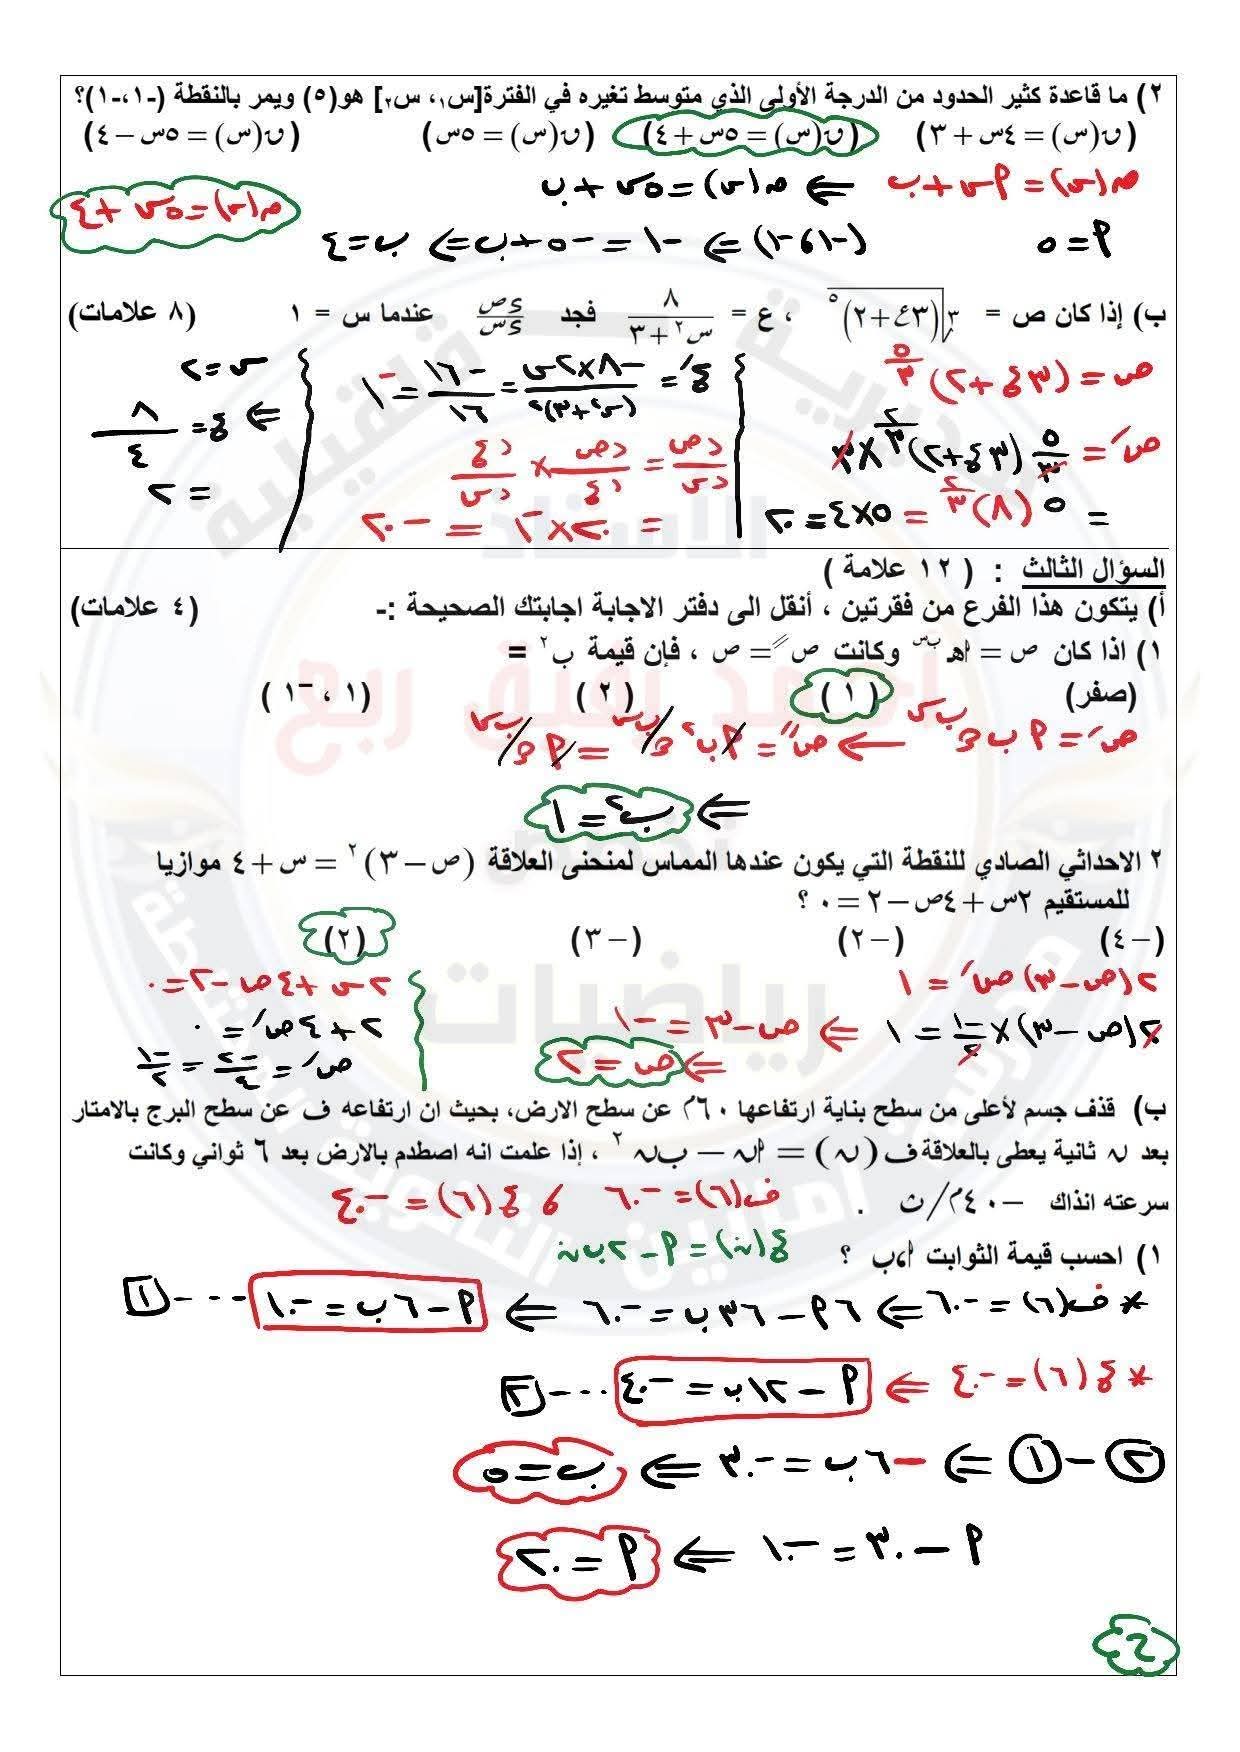 ٢) ما قاعدة كثير الحدود من الدرجة الأولى الذي متوسط تغيره في الفترة[س١، س٢] هو(٥) ويمر بالنقطة (-١،-١)؟
(ق(س) = ٤س + ٣) (ق(س) = ٥س + ٤) (ق(س) = ٥س) (ق(س) = ٥س − ٤)
ق(س) = أس + ب ⇐ ق(س) = ٥س + ب ق(س) = ٥س + ٤
أ = ٥ (-١ ، -١) ⇐ -١ = -٥ + ب ⇐ ب = ٤
ب) إذا كان ص = ∛(٣ع + ٢)^٥ ، ع = ٨/(س٢ + ٣) فجد ءص/ءس عندما س = ١ (٨ علامات)
ص = (٣ع + ٢)^(٥/٣) ع´ = -٨×٢س/(س٢+٣)٢ = -١٦/١٦ = -١ س = ٢
ص´ = ٥/٣ (٣ع + ٢)^(٢/٣) × ٣ دص/دس = دص/دع × دع/دس ⇐ ع = ٨/٤
= ٥ (٨)^(٢/٣) = ٥×٤ = ٢٠ = ٢٠ × -١ = -٢٠ = ٢
السؤال الثالث : ( ١٢ علامة )
أ) يتكون هذا الفرع من فقرتين ، أنقل الى دفتر الاجابة اجابتك الصحيحة :- (٤ علامات)
١) اذا كان ص = أهـ^ب س وكانت ص˝ = ص ، فإن قيمة ب٢ =
(صفر) ( ١ ) ( ٢ ) (١ ، -١ )
ص´ = أ ب هـ^ب س ⇐ ص˝ = أ ب٢ هـ^ب س = أ هـ^ب س
⇐ ب٢ = ١
٢ الاحداثي الصادي للنقطة التي يكون عندها المماس لمنحنى العلاقة (ص − ٣)٢ = س + ٤ موازيا
للمستقيم ٢س + ٤ص − ٢ = ٠ ؟
(− ٤) (− ٢) (− ٣) (٢)
٢(ص − ٣) ص´ = ١ ٢س + ٤ص − ٢ = ٠
٢(ص − ٣) × -١/٢ = ١ ⇐ ص − ٣ = -١ ٢ + ٤ص´ = ٠
⇐ ص = ٢ ص´ = -٢/٤ = -١/٢
ب) قذف جسم لأعلى من سطح بناية ارتفاعها ٦٠م عن سطح الارض، بحيث ان ارتفاعه ف عن سطح البرج بالامتار
بعد ن ثانية يعطى بالعلاقة ف (ن) = أن − ب ن٢ ، إذا علمت انه اصطدم بالارض بعد ٦ ثواني وكانت
سرعته انذاك −٤٠م/ث . ف(٦) = -٦٠ و ع(٦) = -٤٠
١) احسب قيمة الثوابت أ،ب ؟ ع(ن) = أ − ٢ب ن
* ف(٦) = -٦٠ ⇐ ٦أ − ٣٦ب = -٦٠ ⇐ أ − ٦ب = -١٠ ---- ١
* ع(٦) = -٤٠ ⇐ أ − ١٢ب = -٤٠ ---- ٢
٢ − ١ ⇐ -٦ب = -٣٠ ⇐ ب = ٥
أ − ٣٠ = -١٠ ⇐ أ = ٢٠
2
الاستاذ
رياضيات